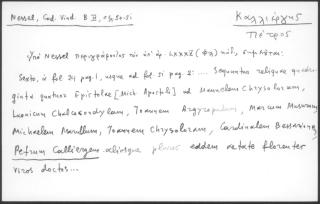 Nessel, Cod. Vind. B II, σελ. 50-51
Καλλιέργης
Πέτρος
Ὑπὸ Nessel περιγράφοντος τὸν ὑπ' ἀρ. LXXXI κώδ., σημειοῦται:
Sexto, à fol. 34 pag. 1, usque ad fol. 51 pag. 2: .... Sequuntur reliquae quadra-
ginta quatuor Epistolae [Mich. Apostoli] ad Manuelem Chrysoloram,
Laonicum Chalcocondylam, Joannem Argyropulum, Marcum Musurum,
Michaelem Marullum, Joannem Chrysoloram, Cardinalem Bessarionem,
Petrum Calliergem aliosque plures eadem aetate florentes
viros doctos...